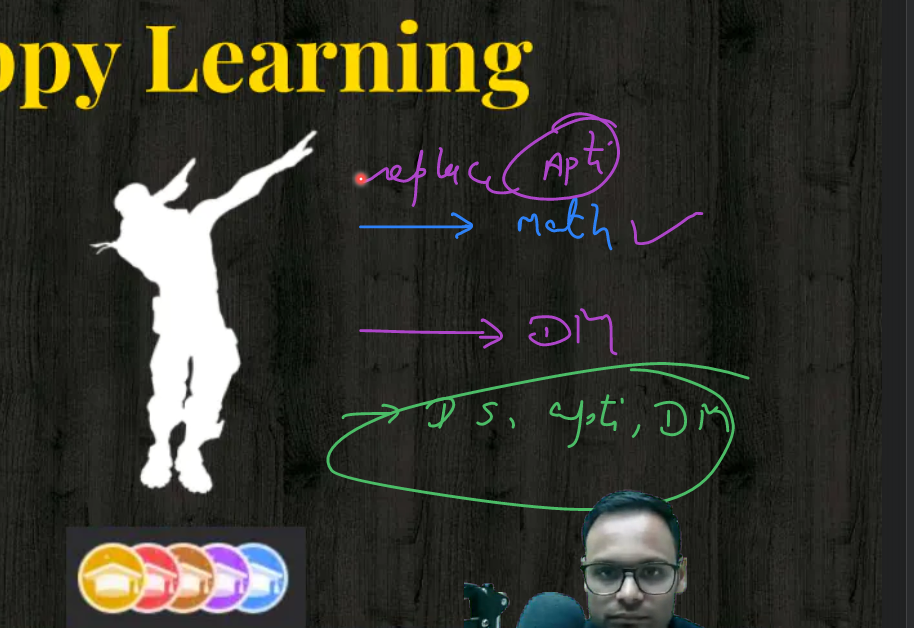 ppy Learning
replace Apti
math
DM
DS, apti, DM